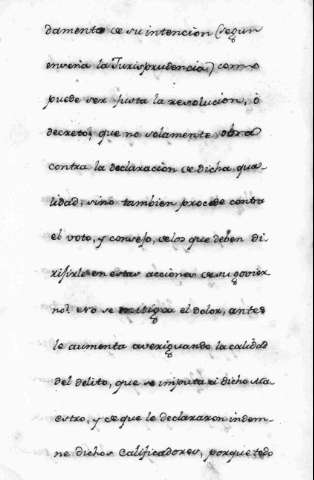 damento de su intencion (segun
enseña la Jurisprudencia) como
puede ser justa la resolucion, ò
decreto, que no solamente obra
contra la declaracion de dicha qua-
lidad, sino tambien procede contra
el voto, y consejo, de los que deben di-
rijirle en estas acciones de su govier-
no? No se mitiga el dolor, antes
le aumenta averiguando la calidad
del delito, que se imputa à dicho Ma-
estro, y de que le declararon indem-
ne dichos Calificadores, porque todo